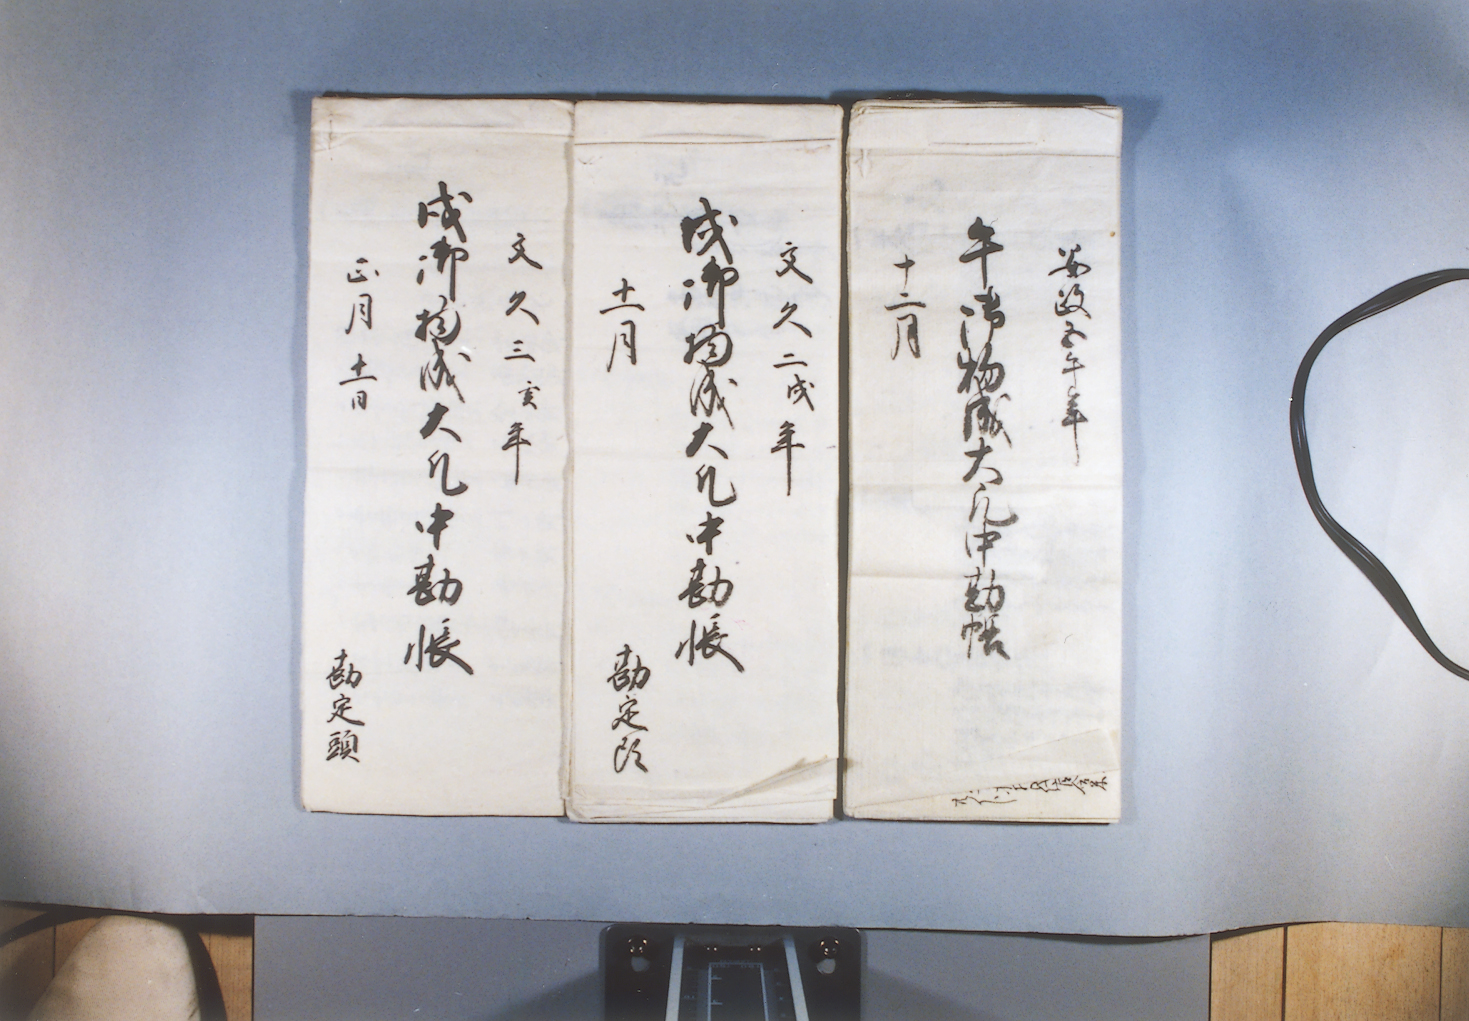 安政五午年
午御物成大凡中勘帳
十二月
文久二戌年
戌御物成大凡中勘帳
十一月
勘定頭
文久三亥年
戌御物成大凡中勘帳
正月十一日
勘定頭